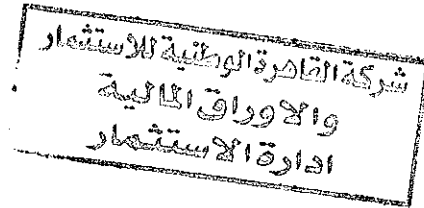 شركة القاهرة الوطنية للاستثمار
والاوراق المالية
ادارة الاستثمار